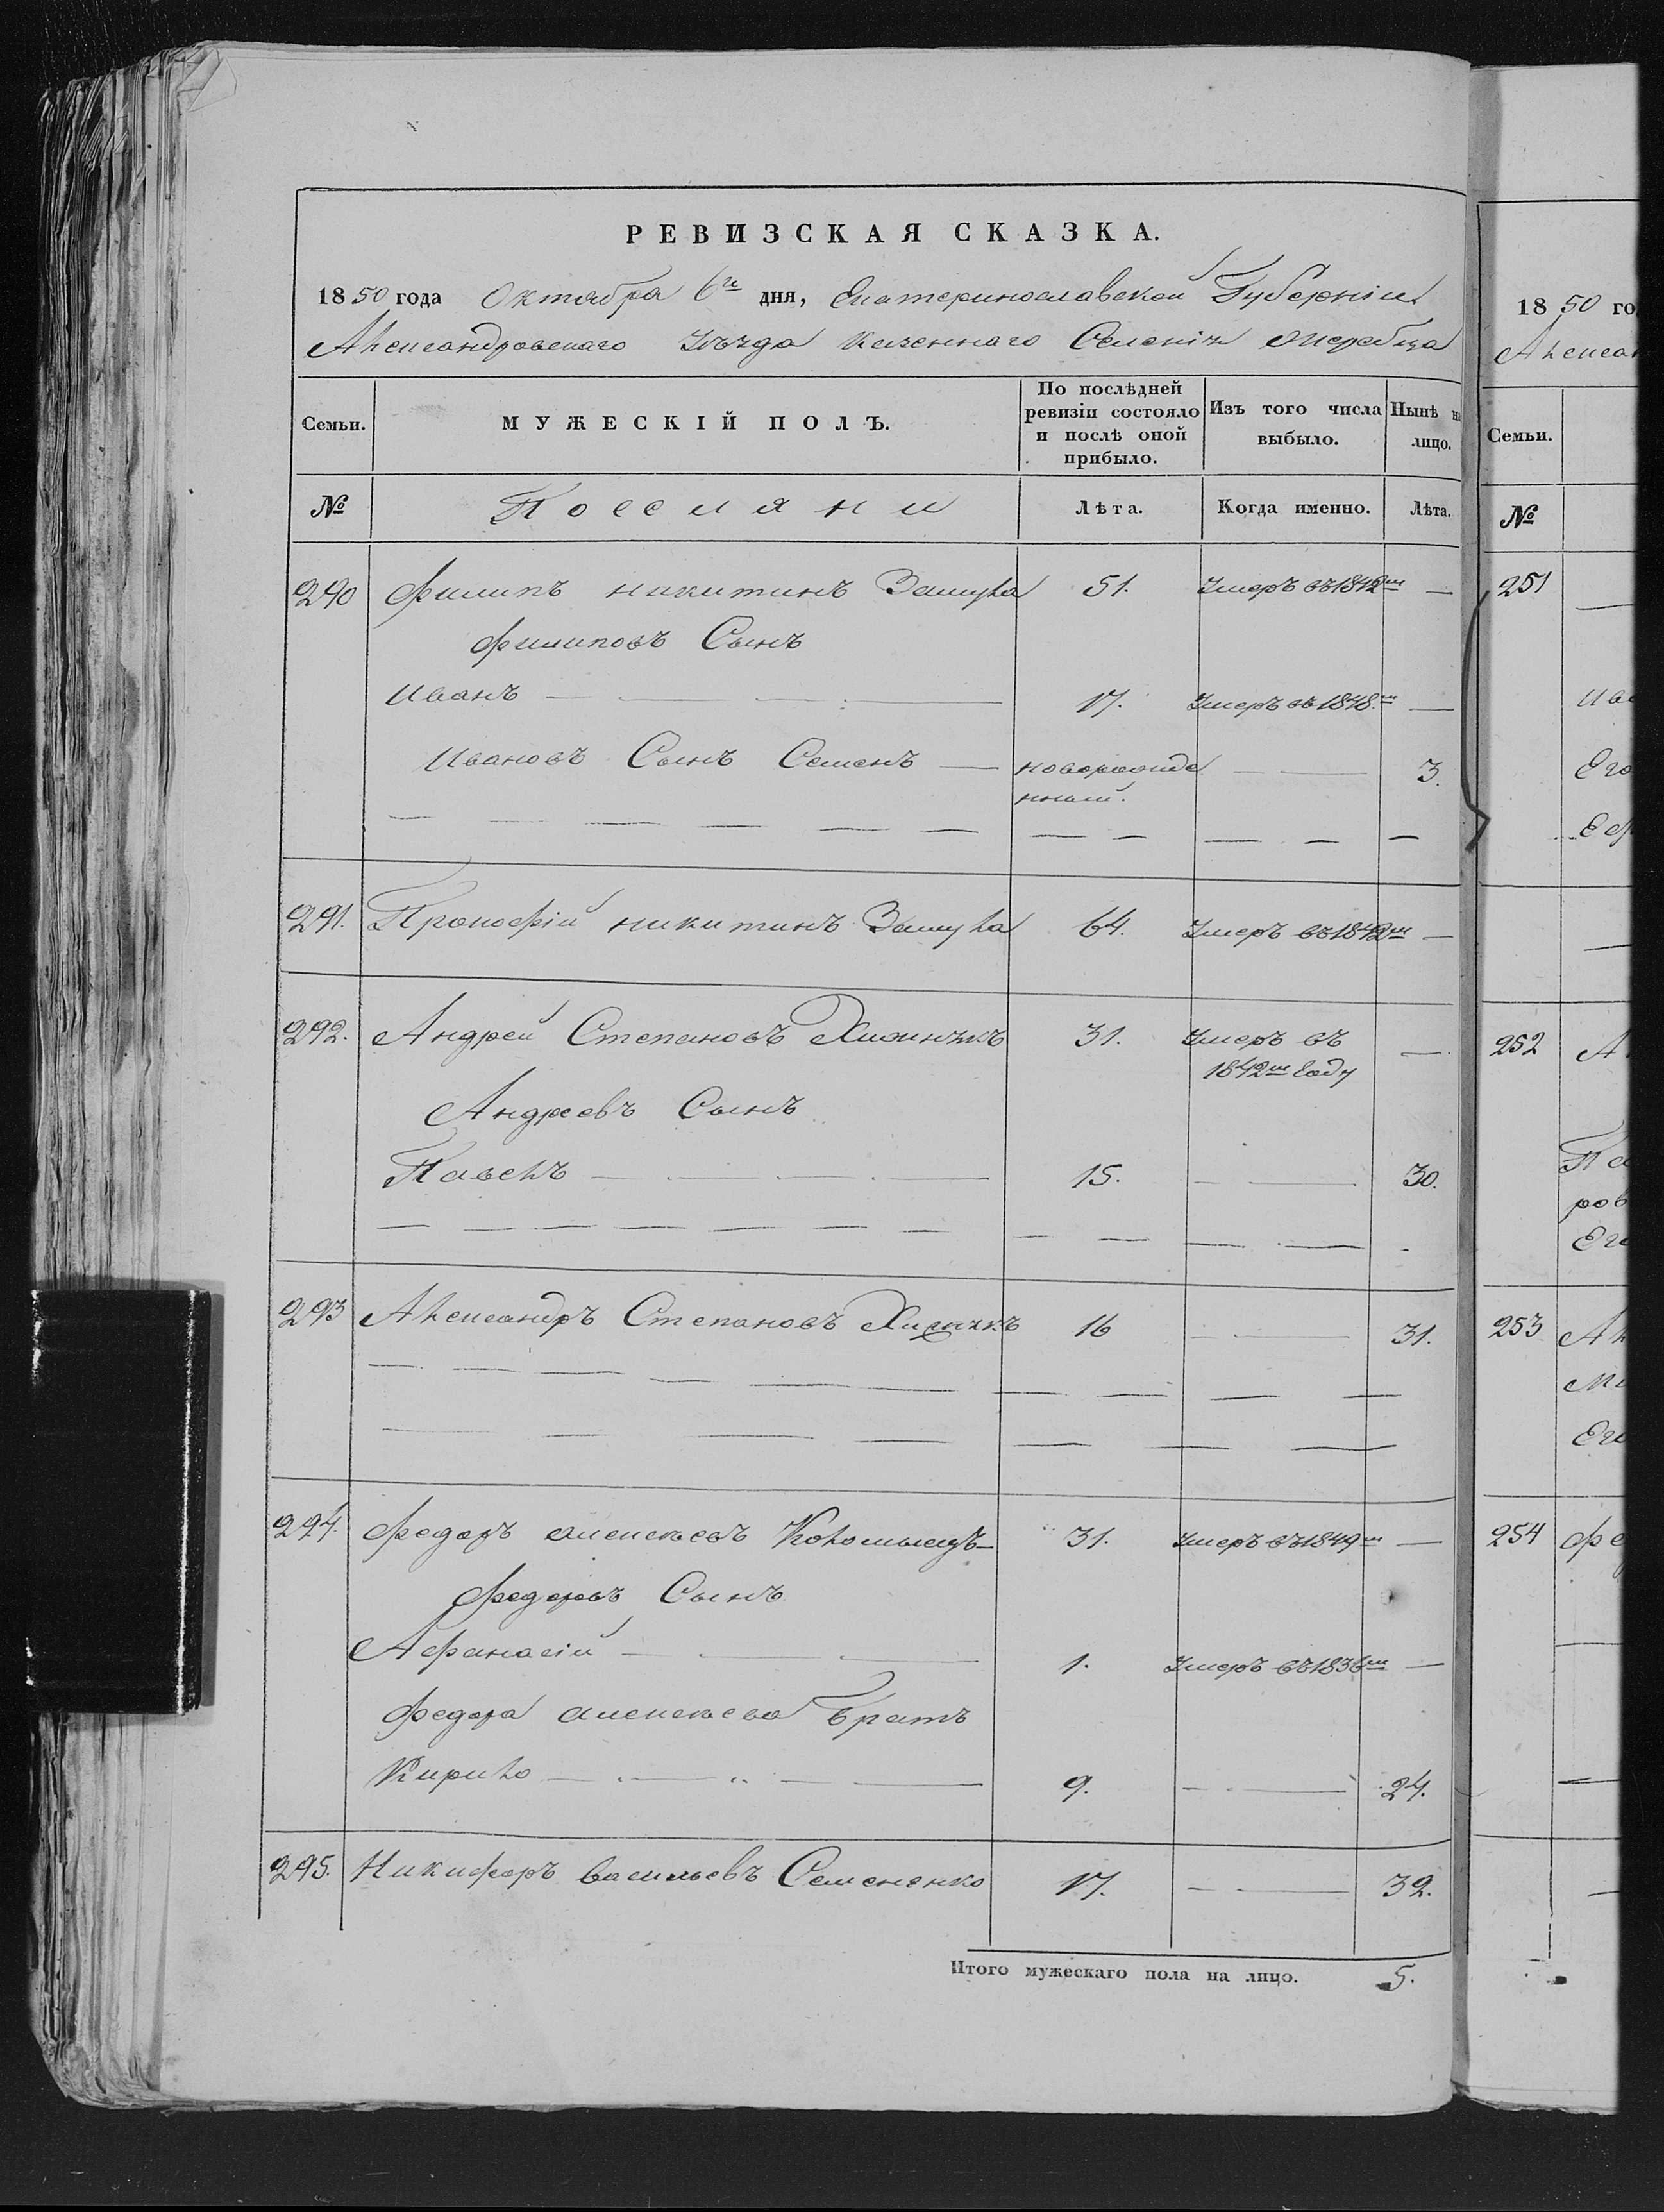 РЕВИЗСКАЯ СКАЗКА.
1850 года Октября 6го дня, Екатеринославской Губерніи
Александровскаго Уѣзда Казеннаго Селенія Жеребца
Семьи. МУЖЕСКІЙ ПОЛЪ. По послѣдней ревизіи состояло и послѣ оной прибыло. Изъ того числа выбыло. Нынѣ на лицо.
№ Поселяни Лѣта. Когда именно. Лѣта.
290 Филипъ никитинъ Замула 51. Умеръ въ 1842м —
Филиповъ Сынъ
Иванъ — 17. Умеръ въ 1848м —
Ивановъ Сынъ Семенъ — новорожде — 3.
нный.
291. Прокофій никитинъ Замула 64. Умеръ въ 1842м —
292. Андрей Степановъ 31. Умеръ въ —
1842м Году
Андреевъ Сынъ
Павелъ — 15. — 30.
293 Александръ Степановъ 16 — 31.
294. Федоръ алексѣевъ Коломыецъ 31. Умеръ въ 1849м —
Федоровъ Сынъ
Афанасій — 1. Умеръ въ 1836м —
Федора алексѣева Братъ
Кирило — 9. — 24.
295. Никифоръ васильевъ Семененко 17. — 32.
Итого мужескаго пола на лицо. 5.
1850 го
Алексан
Семьи.
№
251
Ива
Его
Еф
252 А
Па
ров
Его
253 Ал
Ми
Его
254 Фе